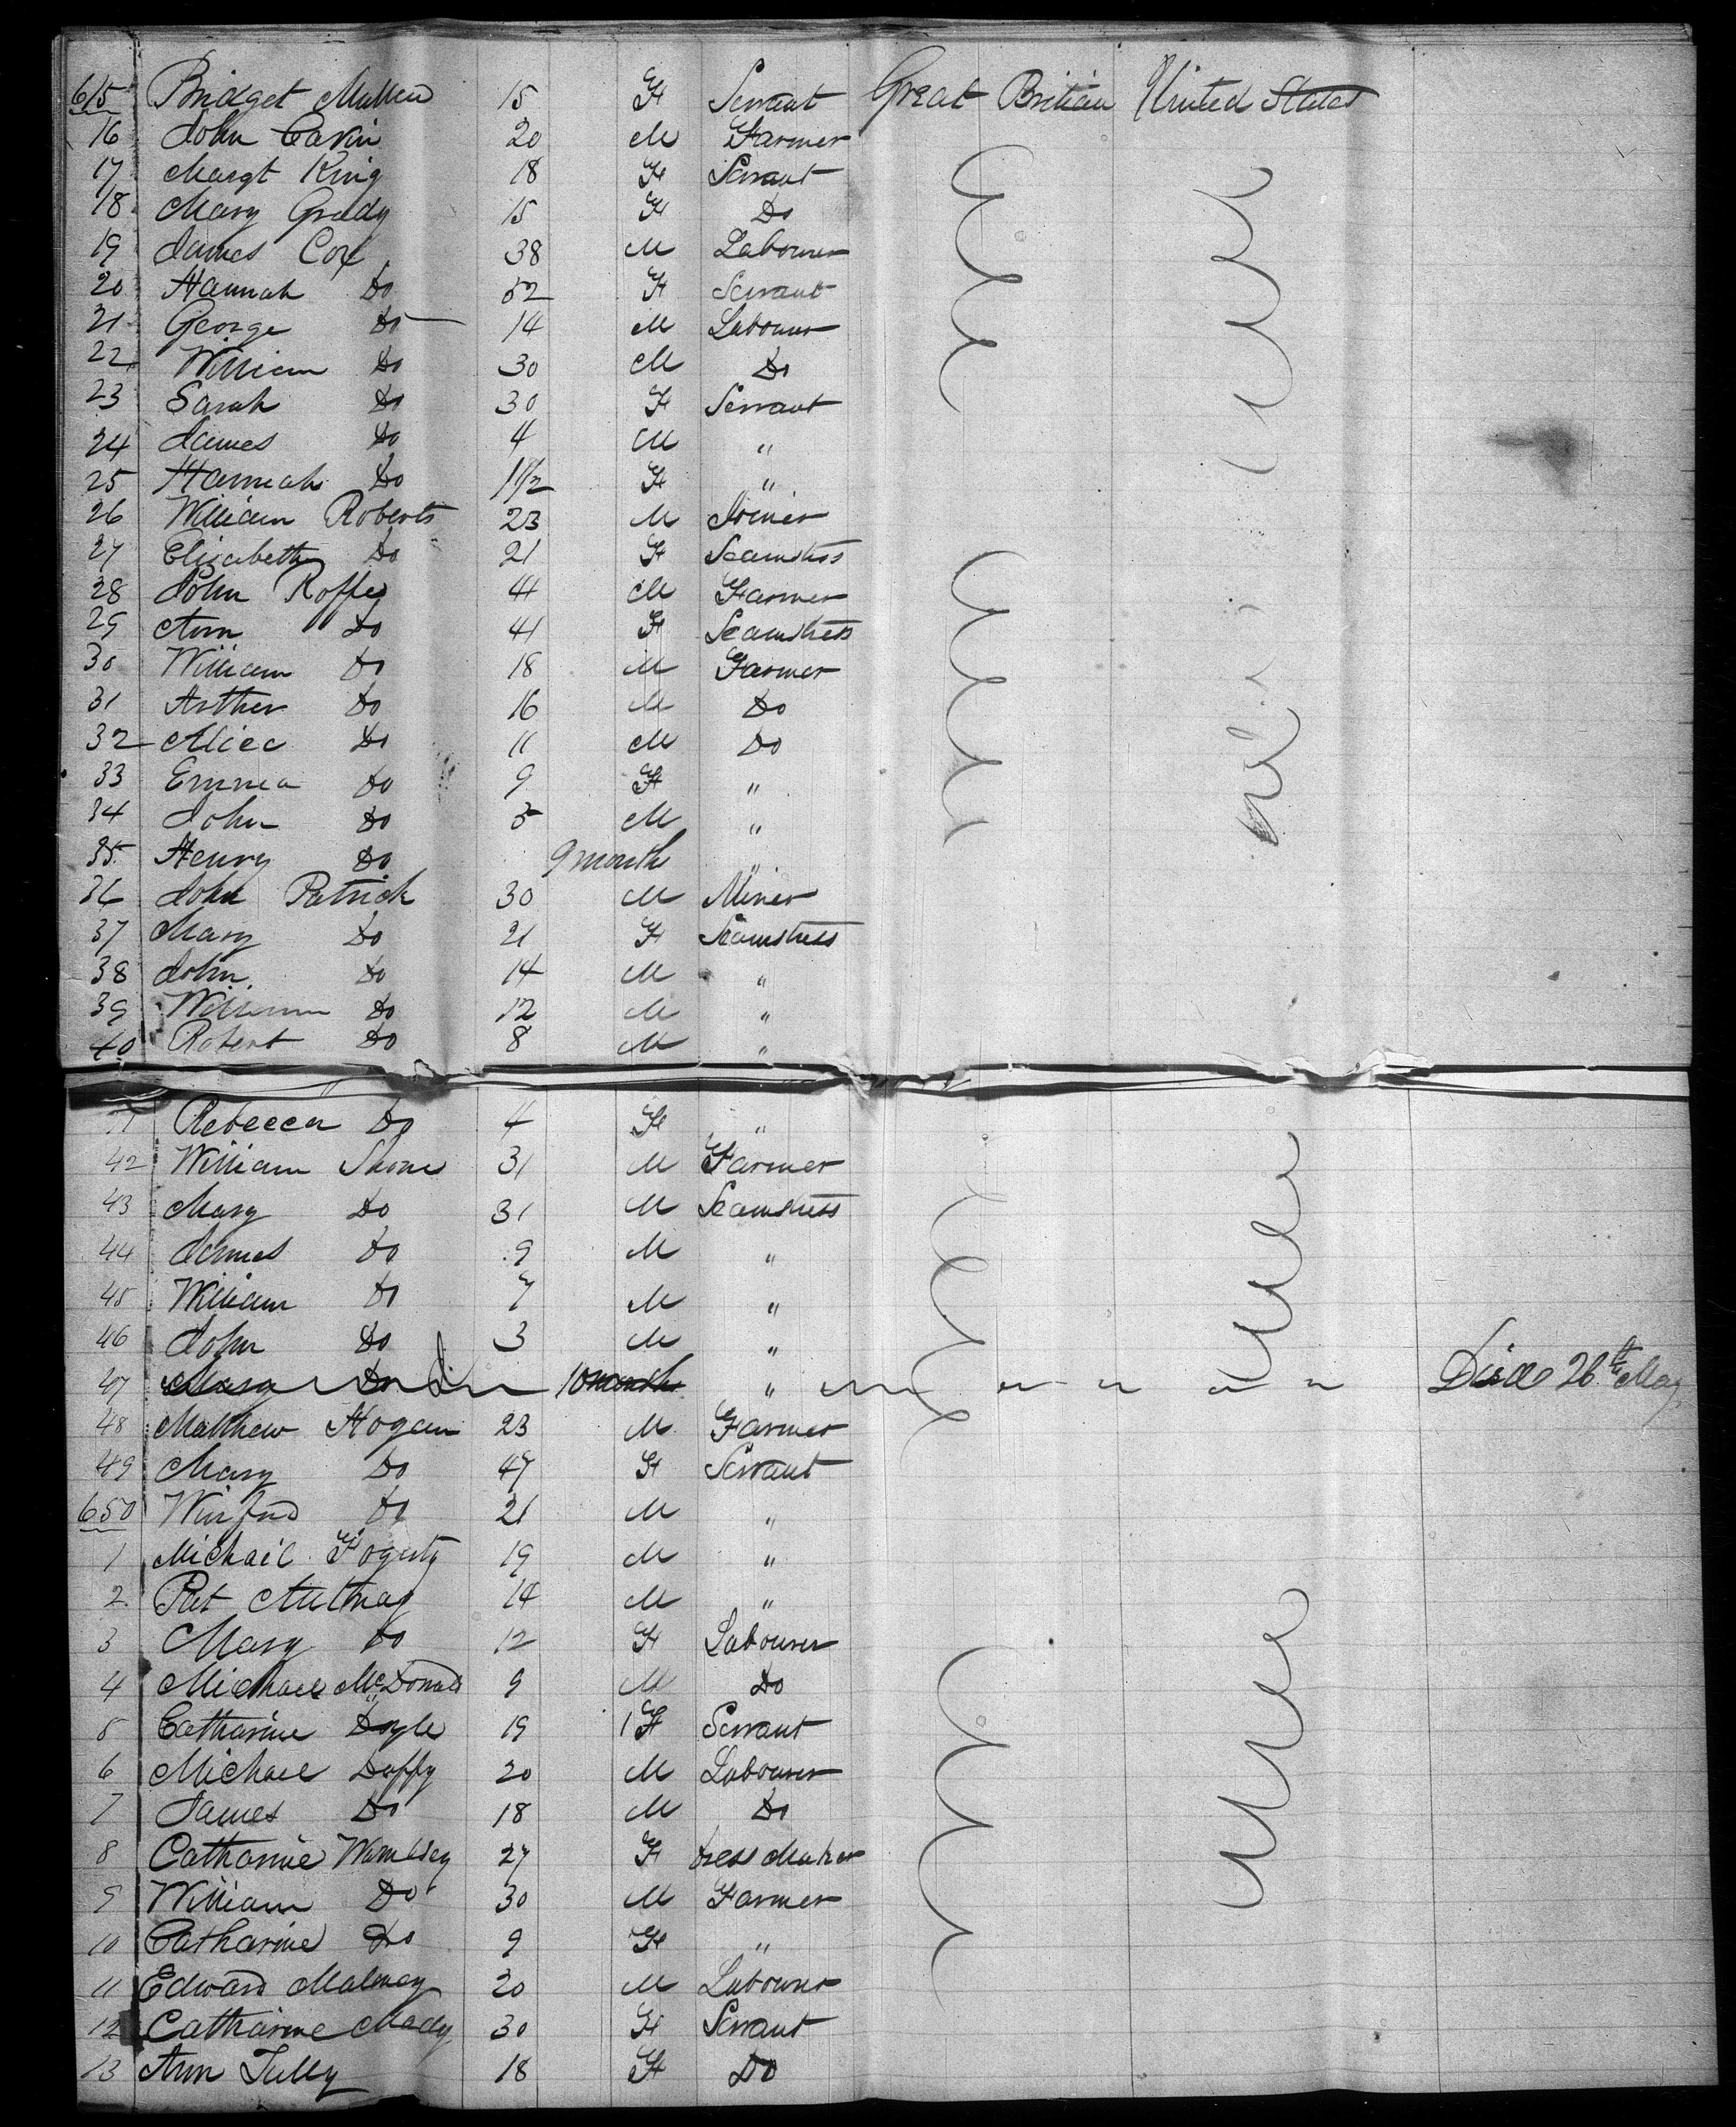 615 Bridget Mullen 15 F Servant Great Britian United States
16 John Cavin 20 M Farmer
17 Margt King 18 F Servant
18 Mary Grady 15 F Do
19 James Cox 38 M Labourer
20 Hannah Do 52 F Servant
21 George Do 14 M Labourer
22 William Do 30 M Do
23 Sarah Do 30 F Servant
24 James Do 4 M "
25 Hannah Do 1 1/2 F "
26 William Roberts 23 M Joiner
27 Elizabeth Do 21 F Seamstress
28 John Roffey 41 M Farmer
29 Ann Do 41 F Seamstress
30 William Do 18 M Farmer
31 Arther Do 16 M Do
32 Alice Do 11 M Do
33 Emma Do 9 F "
34 John Do 5 M "
35 Henry Do 9 months "
36 John Patrick 30 M Miner
37 Mary Do 21 F Seamstress
38 John Do 14 M "
39 William Do 12 M "
40 Robert Do 8 M "
Rebecca Do 4 F "
42 William Shone 31 M Farmer
43 Mary Do 31 M Seamstress
44 James Do 9 M "
45 William Do 7 M "
46 John Do 3 M "
47 Mary Do 10 months " Died 26th May
48 Matthew Hogan 23 M Farmer
49 Mary Do 47 F Servant
650 Winfred Do 21 M "
1 Michael Fogerty 19 M "
2 Pat 14 M "
3 Mary Do 12 F Labourer
4 Michael McDonald 9 M Do
5 Catharine Doyle 19 F Servant
6 Michael Duffy 20 M Labourer
7 James Do 18 M Do
8 Catharine Wambley 27 F Dress Maker
9 William Do 30 M Farmer
10 Catharine Do 9 F "
11 Edward Maloney 20 M Labourer
12 Catharine Mady 30 F Servant
13 Ann Tully 18 F Do